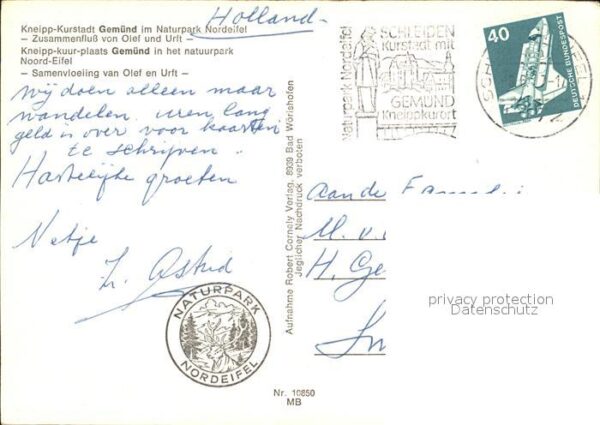 Holland-
Kneipp-Kurstadt Gemünd im Naturpark Nordeifel
- Zusammenfluß von Olef und Urft -
Kneipp-kuur-plaats Gemünd in het natuurpark
Noord-Eifel
- Samenvloeiing van Olef en Urft -
Wij doen alleen maar
wandelen uren lang
geld is over voor kaarten
te schrijven
Hartelijke groeten
Netje
Astrid
NATURPARK
NORDEIFEL
Aufnahme Robert Cornely Verlag, 8939 Bad Wörishofen
Jeglicher Nachdruck verboten
Naturpark Nordeifel
SCHLEIDEN
Kurstadt mit
GEMÜND
Kneippkurort
40
DEUTSCHE BUNDESPOST
aan de
M. v.
H. Ge
privacy protection
Datenschutz
Nr. 10850
MB